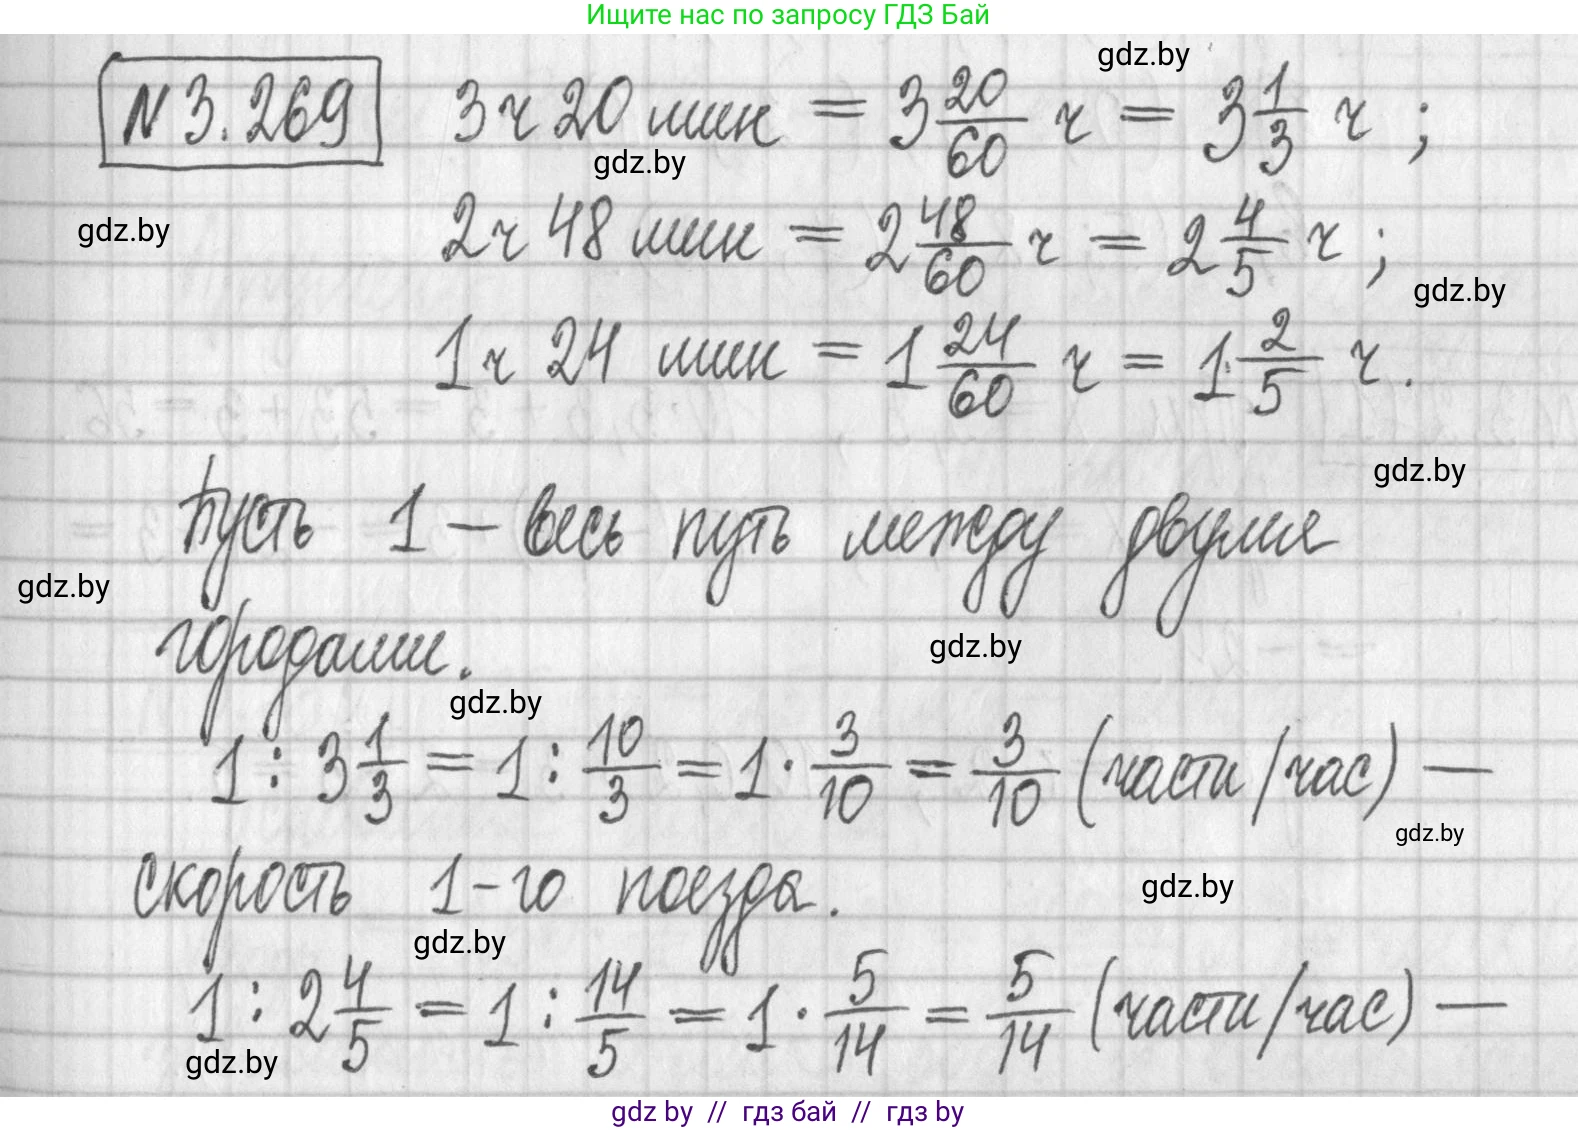 Ищите нас по запросу ГДЗ Бай
gdz.by
№ 3.269 3 ч 20 мин = 3 20/60 ч = 3 1/3 ч ;
gdz.by
gdz.by
2 ч 48 мин = 2 48/60 ч = 2 4/5 ч ;
gdz.by
1 ч 24 мин = 1 24/60 ч = 1 2/5 ч .
gdz.by
Пусть 1 – весь путь между двумя
gdz.by
городами.
gdz.by
gdz.by
1 : 3 1/3 = 1 : 10/3 = 1 · 3/10 = 3/10 (части/час) —
gdz.by
скорость 1-го поезда.
gdz.by
gdz.by
1 : 2 4/5 = 1 : 14/5 = 1 · 5/14 = 5/14 (части/час) —
gdz.by
gdz by // гдз бай // гдз by